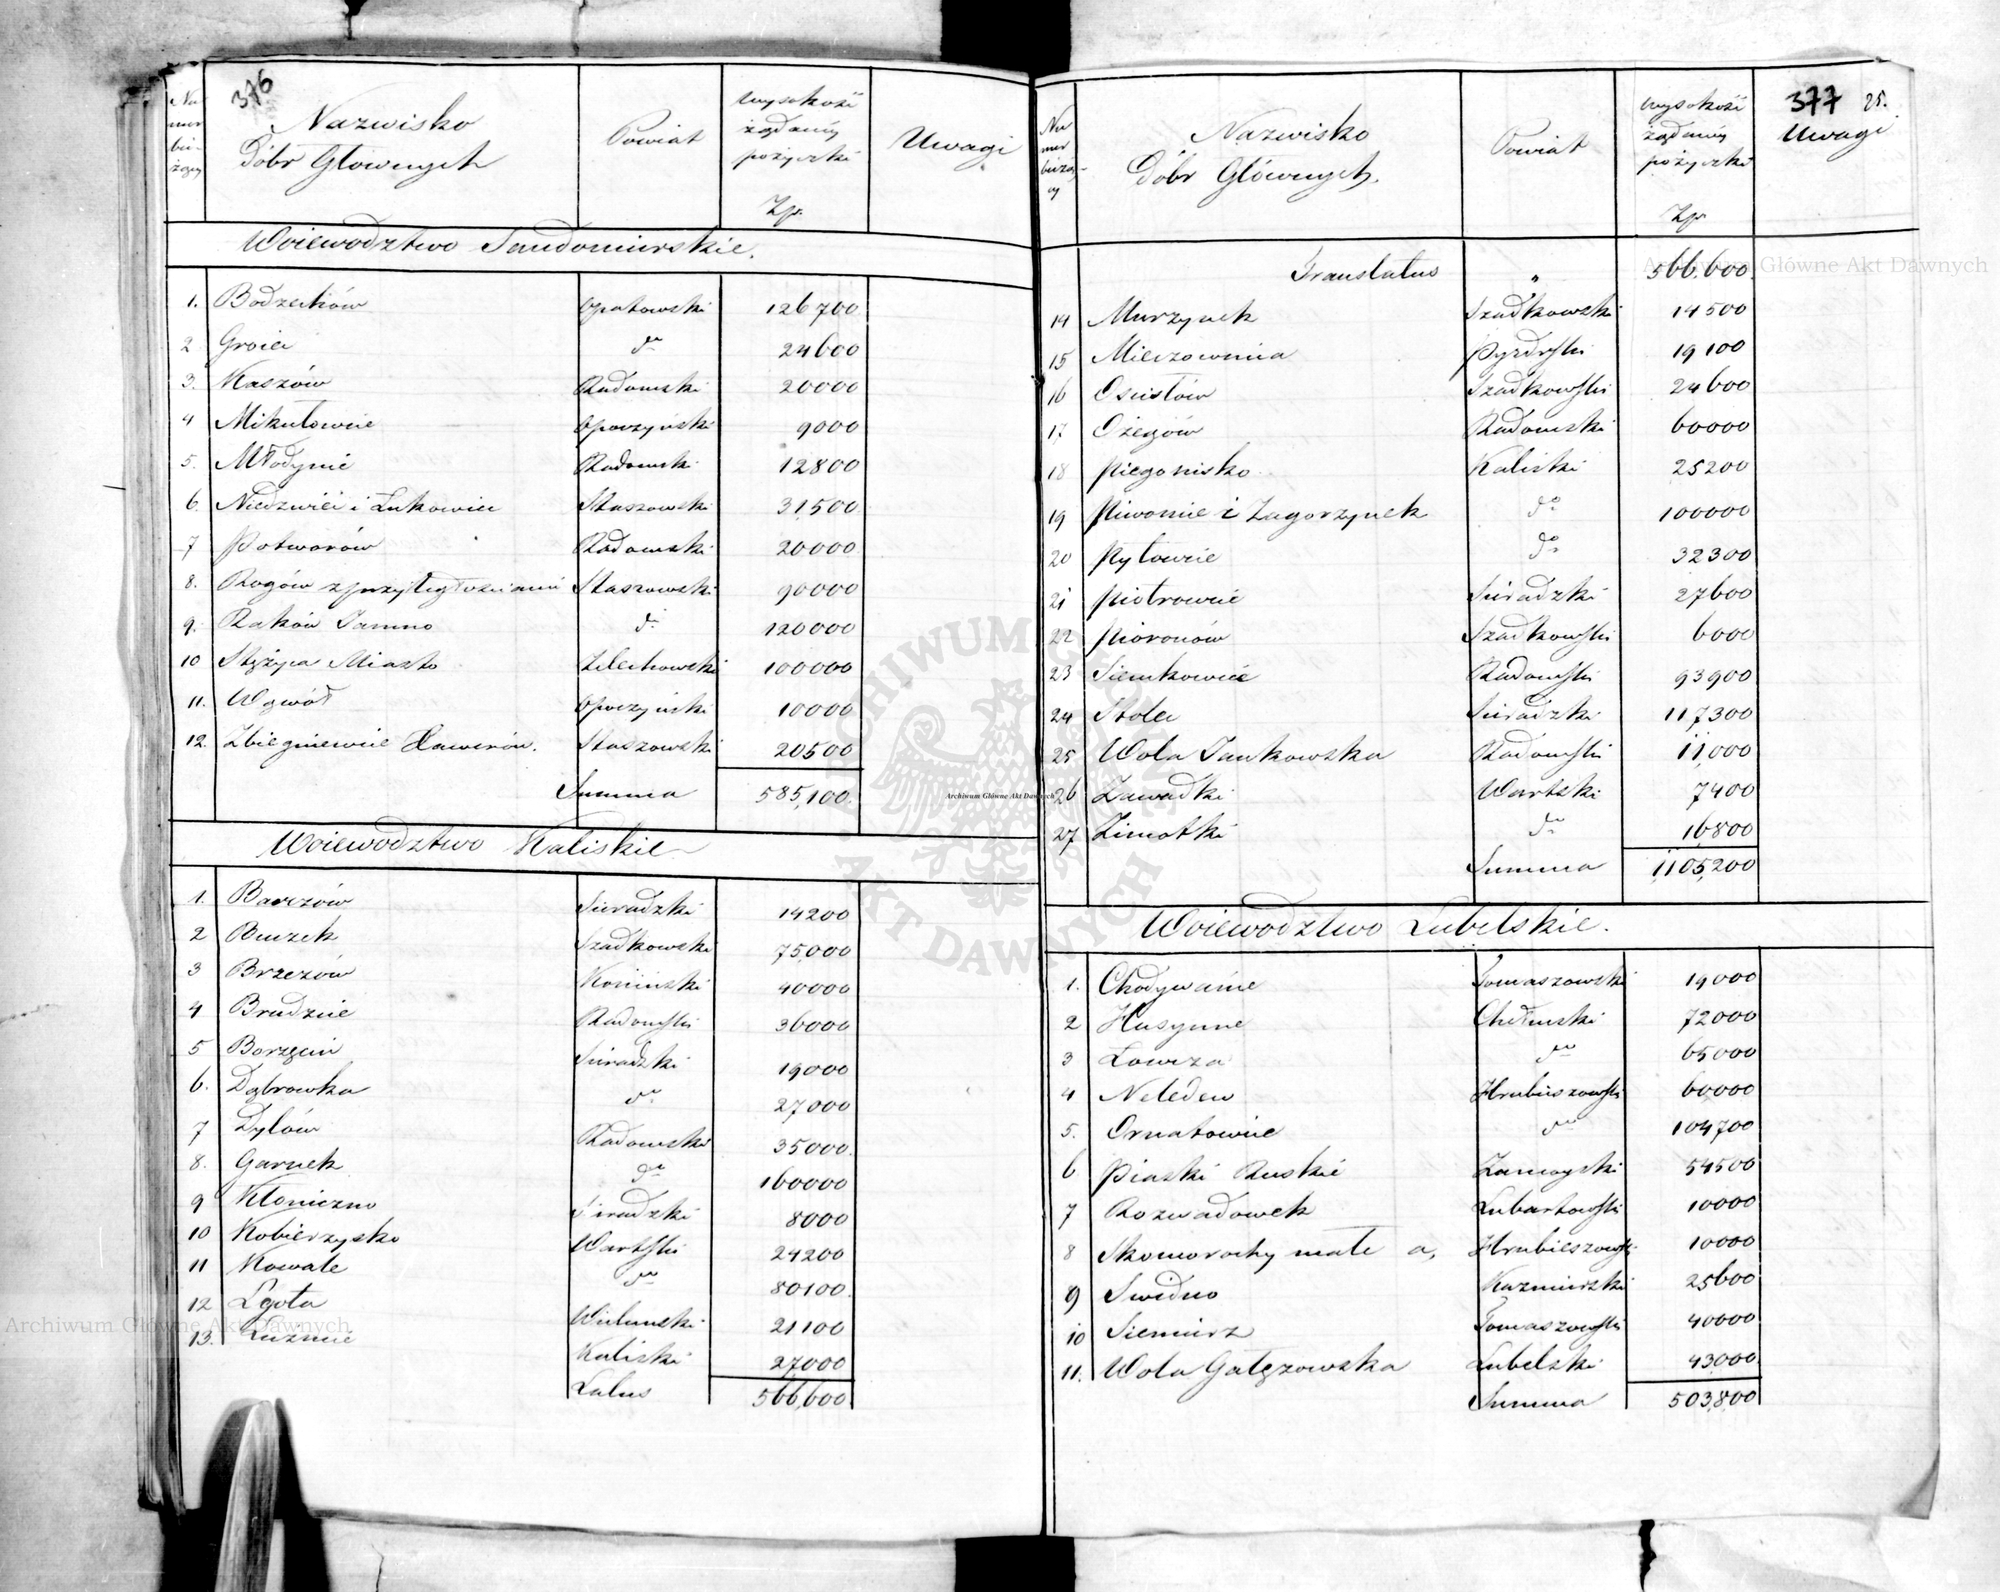 376
Numer bieżący
Nazwisko Dóbr Głównych
Powiat
wysokość żądanéy pożyczki Zp.
Uwagi
Woiewodztwo Sandomirskie.
1. Bodzechów Opatowski 126700
2 Groiec do 24600
3. Kaszów Radomski 20000
4 Mikułowice Opoczyński 9000
5. Młodynie Radomski 12800
6. Niedzwice i Łukowiec Staszowski 31,500
7 Potworów Radomski 20000
8. Rogów z przyległościami Staszowski 90000
9. Raków do 120000
10 Stężyca Miasto Zelechowski 100000
11. Wywóz Opoczyński 10000
12. Zbiegniewice Staszowski 20500
Summa 585,100.
Woiewodztwo Kaliskie
1. Barczów Sieradzki 14200
2 Buczek Szadkowski 75,000
3 Brzezów Koniński 40000
4 Brudzice Radomski 36000
5 Borzęcin Sieradzki 19000
6. Dąbrowka do 27000
7 Dylów Radomski 35000
8. Garnek do 160000
9 Kłoniczno Sieradzki 8000
10 Kobierzysko Wartski 24200
11 Kowale do 80100
12 Lgota Wieluński 21100
13. Kaliski 27,000
Latus 566,600
377 25.
Numer bieżący
Nazwisko Dóbr Głównych.
Powiat
wysokość żądanéy pożyczki Zp.
Uwagi
Translatus " 566,600.
14 Murzynek Szadkowski 14500
15 Mieczownica Pyzdrski 19100
16 Osiny Szadkowski 24600
17 Ożegów Radomski 60000
18 Piegonisko Kaliski 25200
19 Piwonice i Zagorzynek do 100000
20 Pyłowice do 32300
21 Piotrowice Sieradzki 27600
22 Pioronów Szadkowski 6000
23 Siemkowice Radomski 93900
24 Stolec Sieradzki 117300
25 Wola Jankowska Radomski 11,000
26 Zawadki Wartski 7400
27 Zimotki do 16800
Summa 1,105,200
Woiewodztwo Lubelskie.
1. Chodywańce Tomaszowski 19000
2 Husynne Chełmski 72000
3 Łowcza do 65000
4 Neledew Hrubieszowski 60000
5. Ornatowice do 104700
6 Piaski Ruskie Zamoyski 54500
7 Rozwadowek Lubartowski 10000
8 Skomorochy małe a, Hrubieszowski 10000
9 Swidno Kazmierski 25600
10 Siemierz Tomaszowski 40000
11. Wola Gałęzowska Lubelski 43,000
Summa 503,800
Archiwum Główne Akt Dawnych
ARCHIWUM GŁÓWNE AKT DAWNYCH
Archiwum Główne Akt Dawnych
Archiwum Główne Akt Dawnych